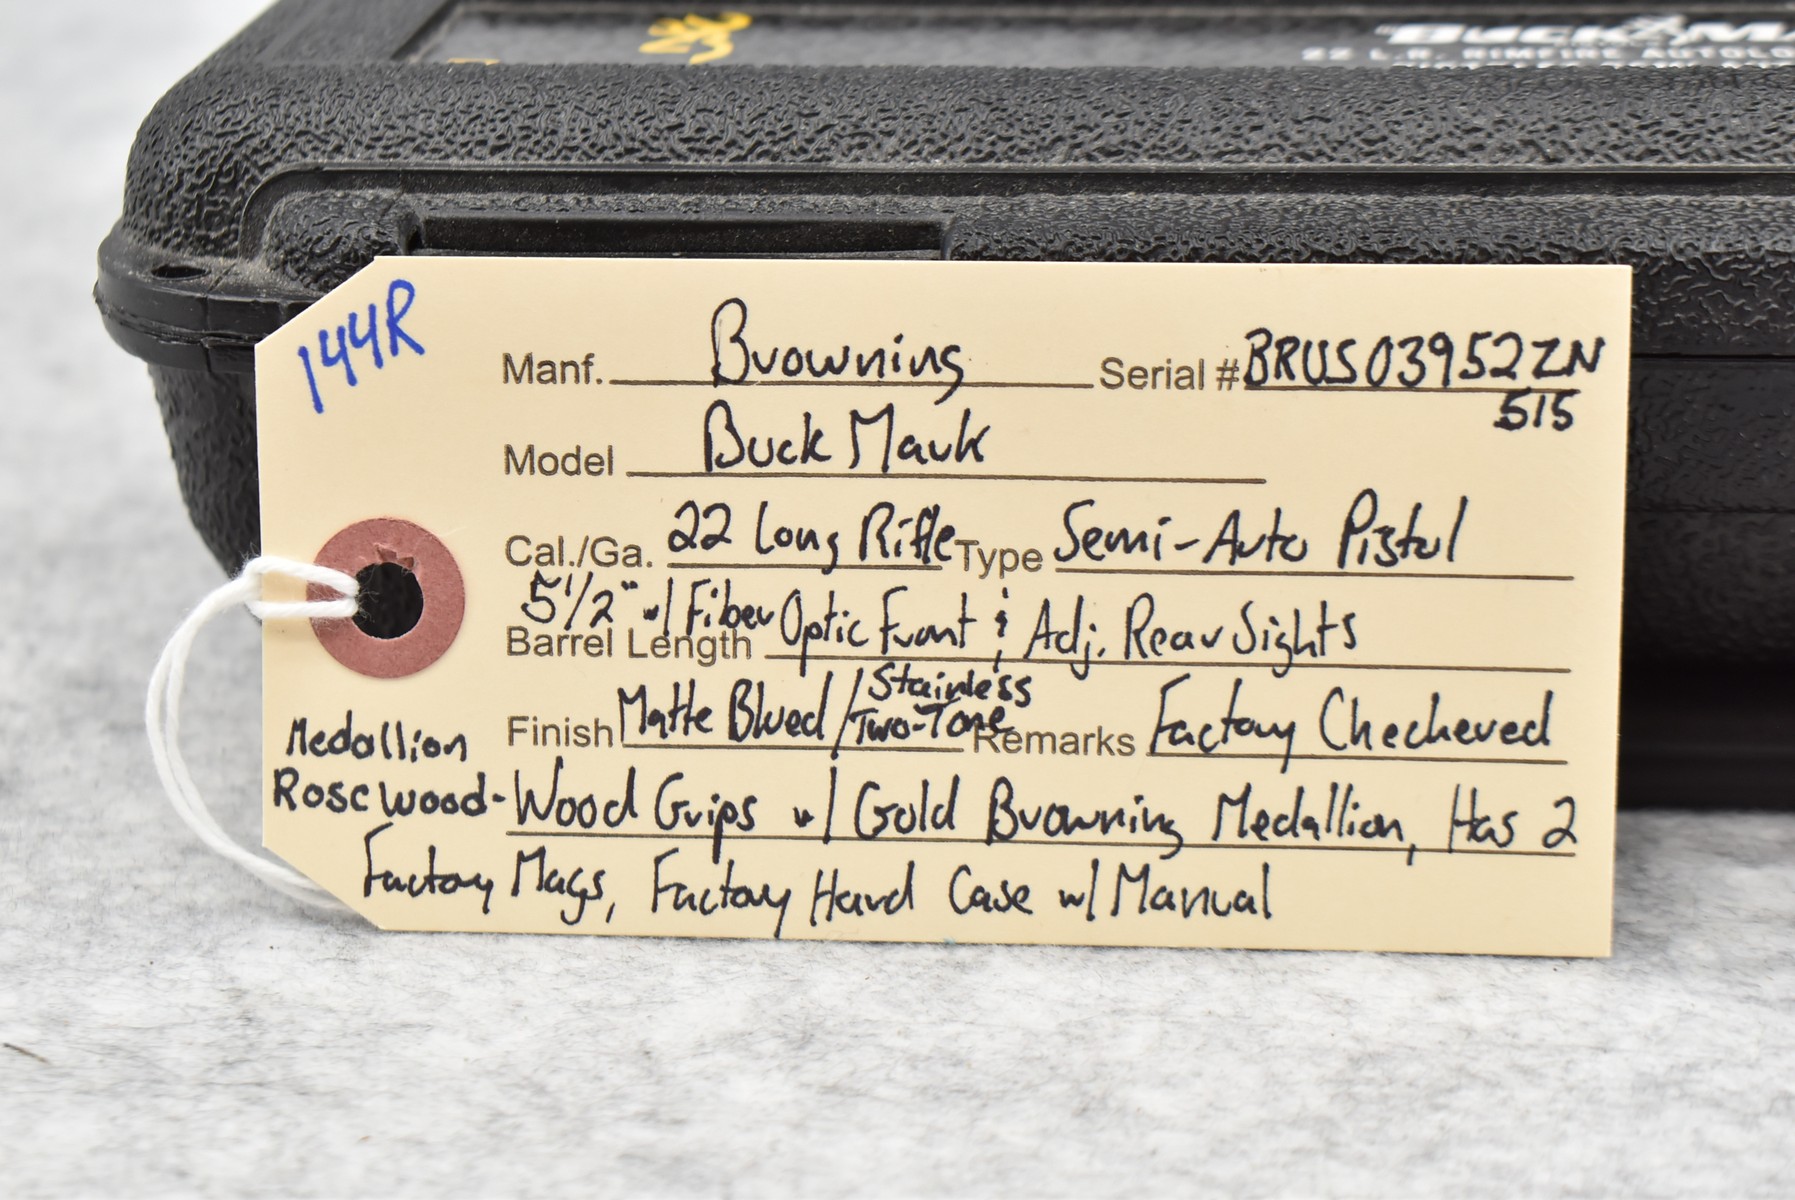 "BUCK MA
22 L.R. RIMFIRE AUTOLO
144R
Manf. Browning Serial # BRUS03952ZN
515
Model Buck Mark
Cal./Ga. 22 Long Rifle Type Semi-Auto Pistol
5 1/2" w/ Fiber Optic Front & Adj. Rear Sights
Barrel Length
Finish Matte Blued / Stainless Two-Tone Remarks Factory Checkered
Medallion
Rosewood- Wood Grips w/ Gold Browning Medallion, Has 2
Factory Mags, Factory Hard Case w/ Manual